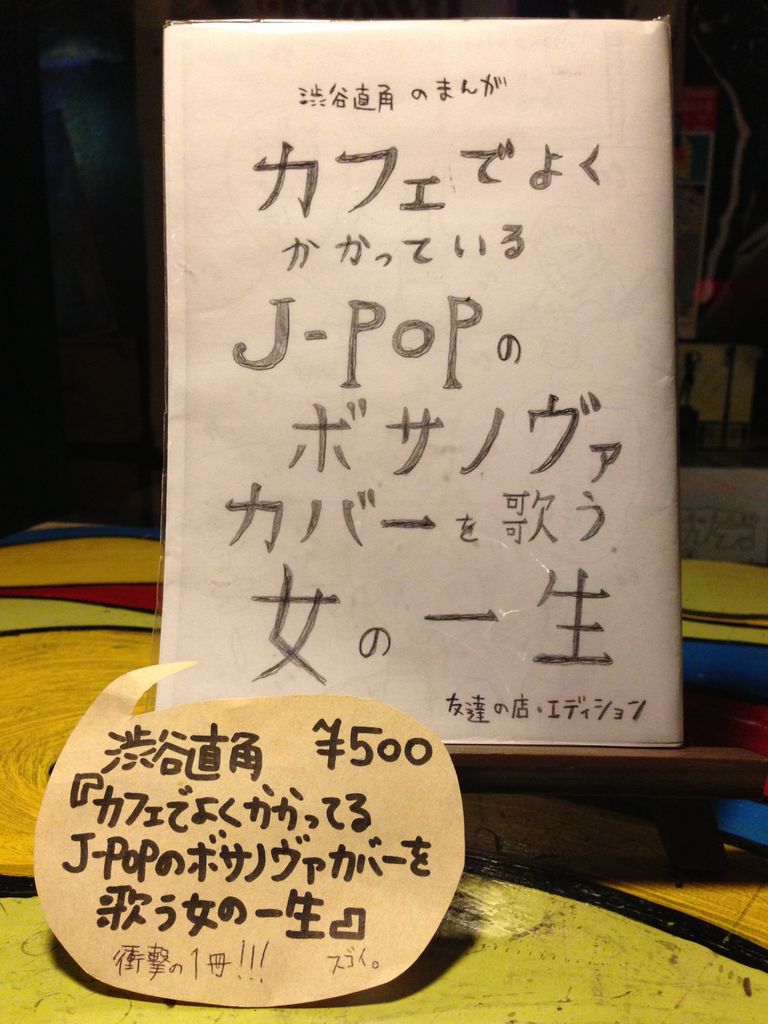 渋谷直角 のまんが
カフェでよく
かかっている
J-POPの
ボサノヴァ
カバーを歌う
女の一生
友達の店・エディション
渋谷直角 ¥500
『カフェでよくかかってる
J-POPのボサノヴァカバーを
歌う女の一生』
衝撃の1冊!!! スゴイ。